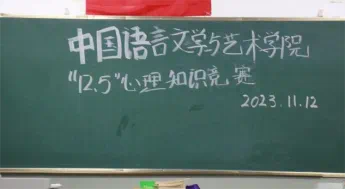 中国语言文学与艺术学院
"12.5"心理知识竞赛
2023.11.12